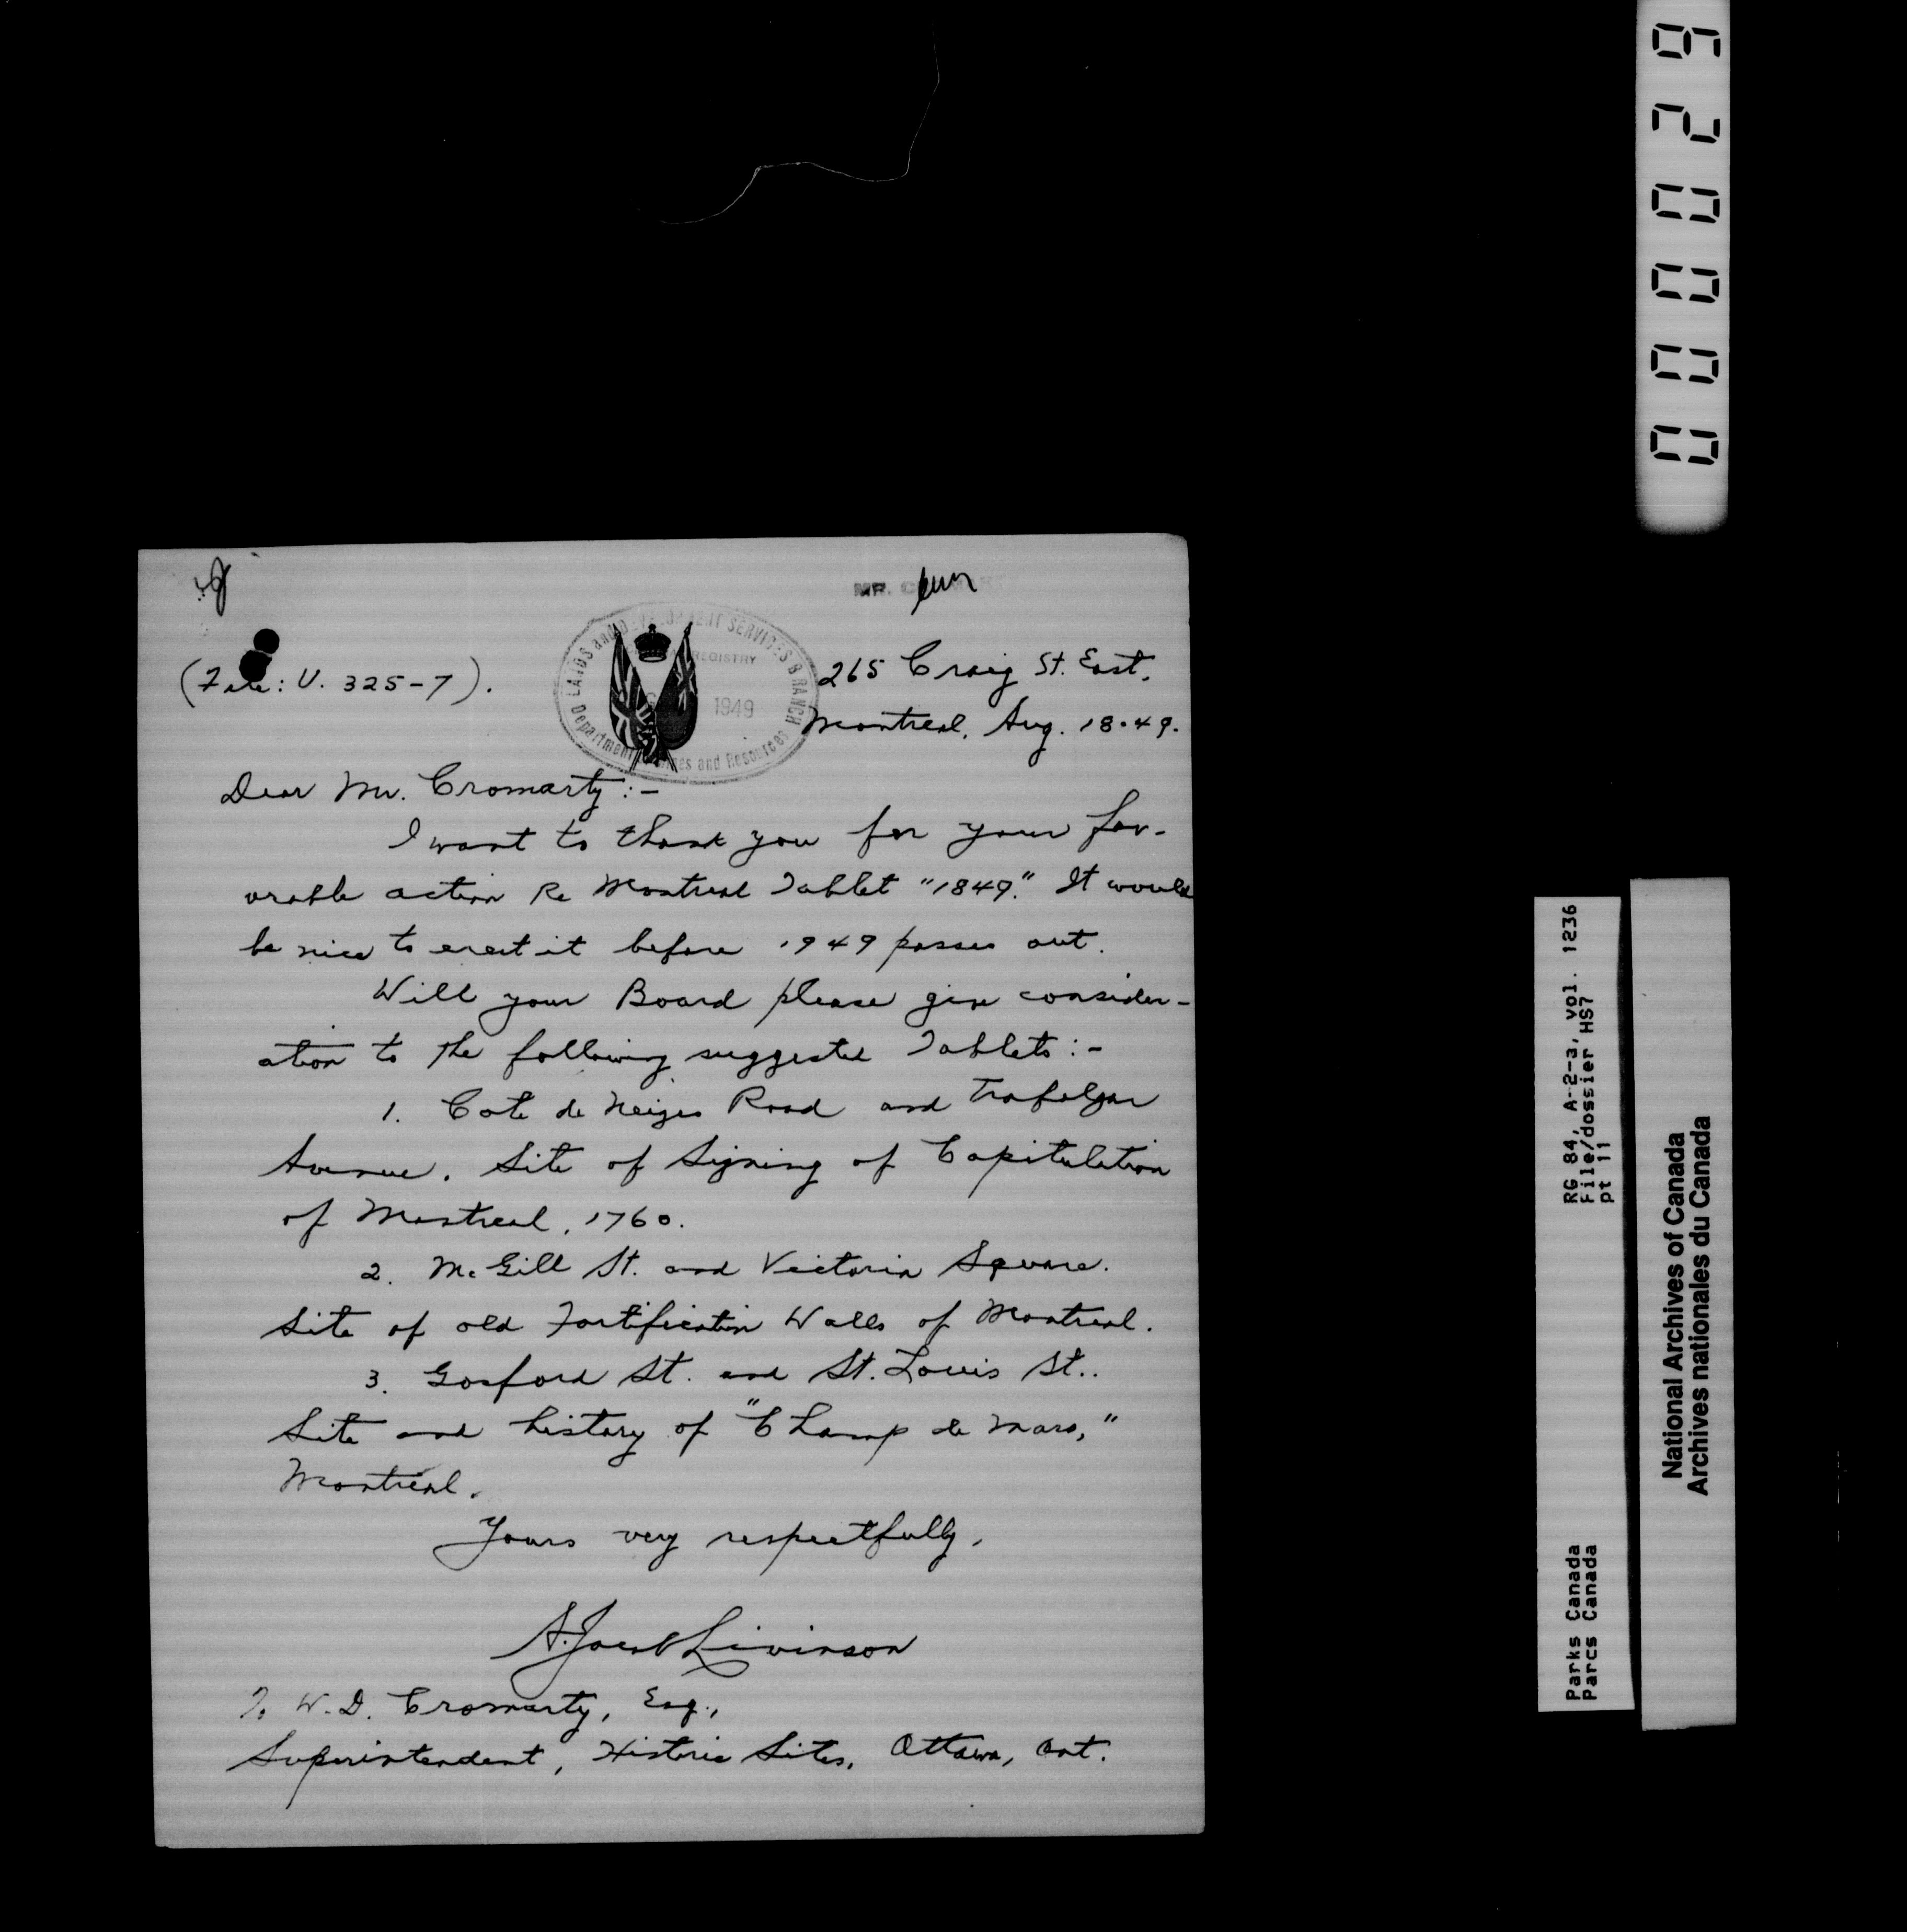 MR.
(File: U. 325-7).
LANDS and DEVELOPMENT SERVICES BRANCH
REGISTRY
1949
Department Mines and Resources
265 Craig St. East,
Montreal, Aug. 18.49.
Dear Mr. Cromarty:-
I want to thank you for your fav-
orable action Re Montreal Tablet "1849." It would
be nice to erect it before 1949 passes out.
Will your Board please give consider-
ation to the following suggested Tablets:-
1. Cote de Neiges Road and Trafalgar
Avenue. Site of Signing of Capitulation
of Montreal, 1760.
2. McGill St. and Victoria Square.
Site of old Fortification Walls of Montreal.
3. Gosford St. and St. Louis St..
Site and history of "Champ de Mars,"
Montreal.
Yours very respectfully,
A. Livinson
To W.D. Cromarty, Esq.,
Superintendent, Historic Sites, Ottawa, Ont.
000029
RG 84, A-2-3, vol. 1236
File/dossier HS7
pt 11
Parks Canada
Parcs Canada
National Archives of Canada
Archives nationales du Canada